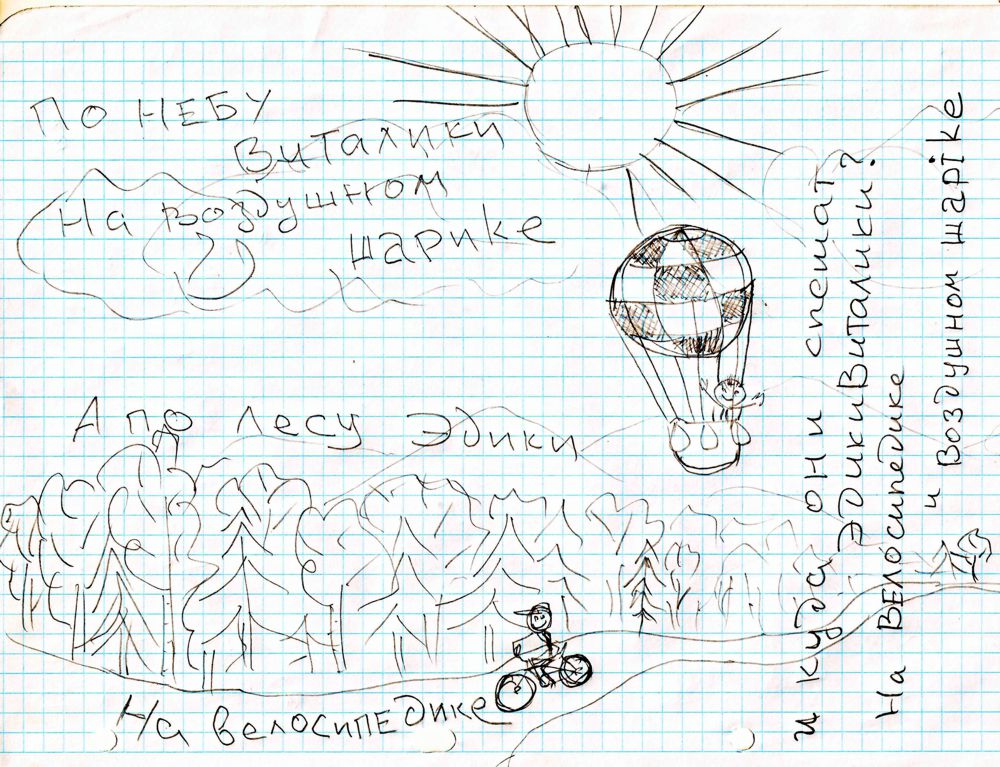 ПО НЕБУ
ВИТАЛИКИ
На ВОЗДУШНОМ
ШАРИКЕ
А ПО ЛЕСУ ЭДИКИ
На ВЕЛОСИПЕДИКЕ
И КУДа ОНИ СПЕШАТ
ЭДИКИВИТАЛИКИ?
На ВЕЛОСИПЕДИКЕ
И
ВОЗДУШНОМ ШАРіКЕ